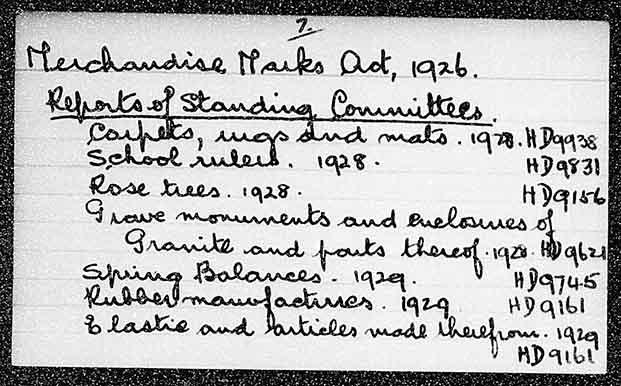 7.
Merchandise Marks Act, 1926.
Reports of Standing Committees.
Carpets, rugs and mats. 1928. HD9938
School rulers. 1928. HD9831
Rose trees. 1928. HD9156
Grave monuments and enclosures of
Granite and parts thereof. 1928. HD9621
Spring Balances. 1929. HD9745
Rubber manufactures. 1929 HD9161
Elastic and articles made therefrom. 1929
HD9161